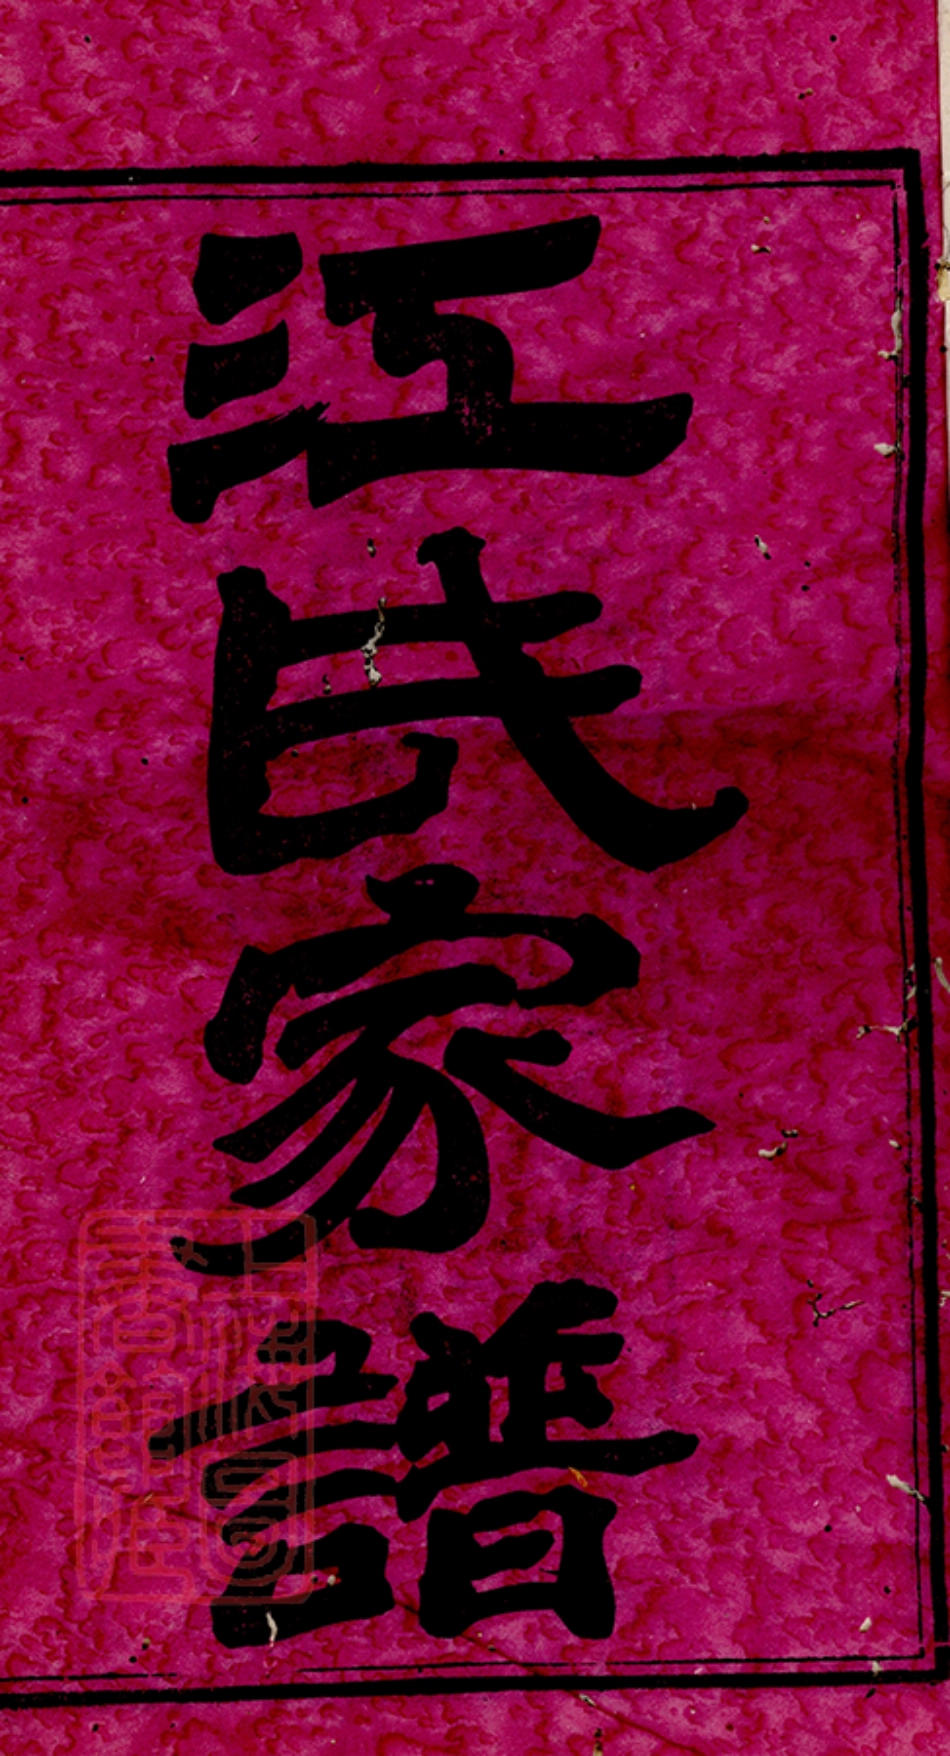 江氏家譜